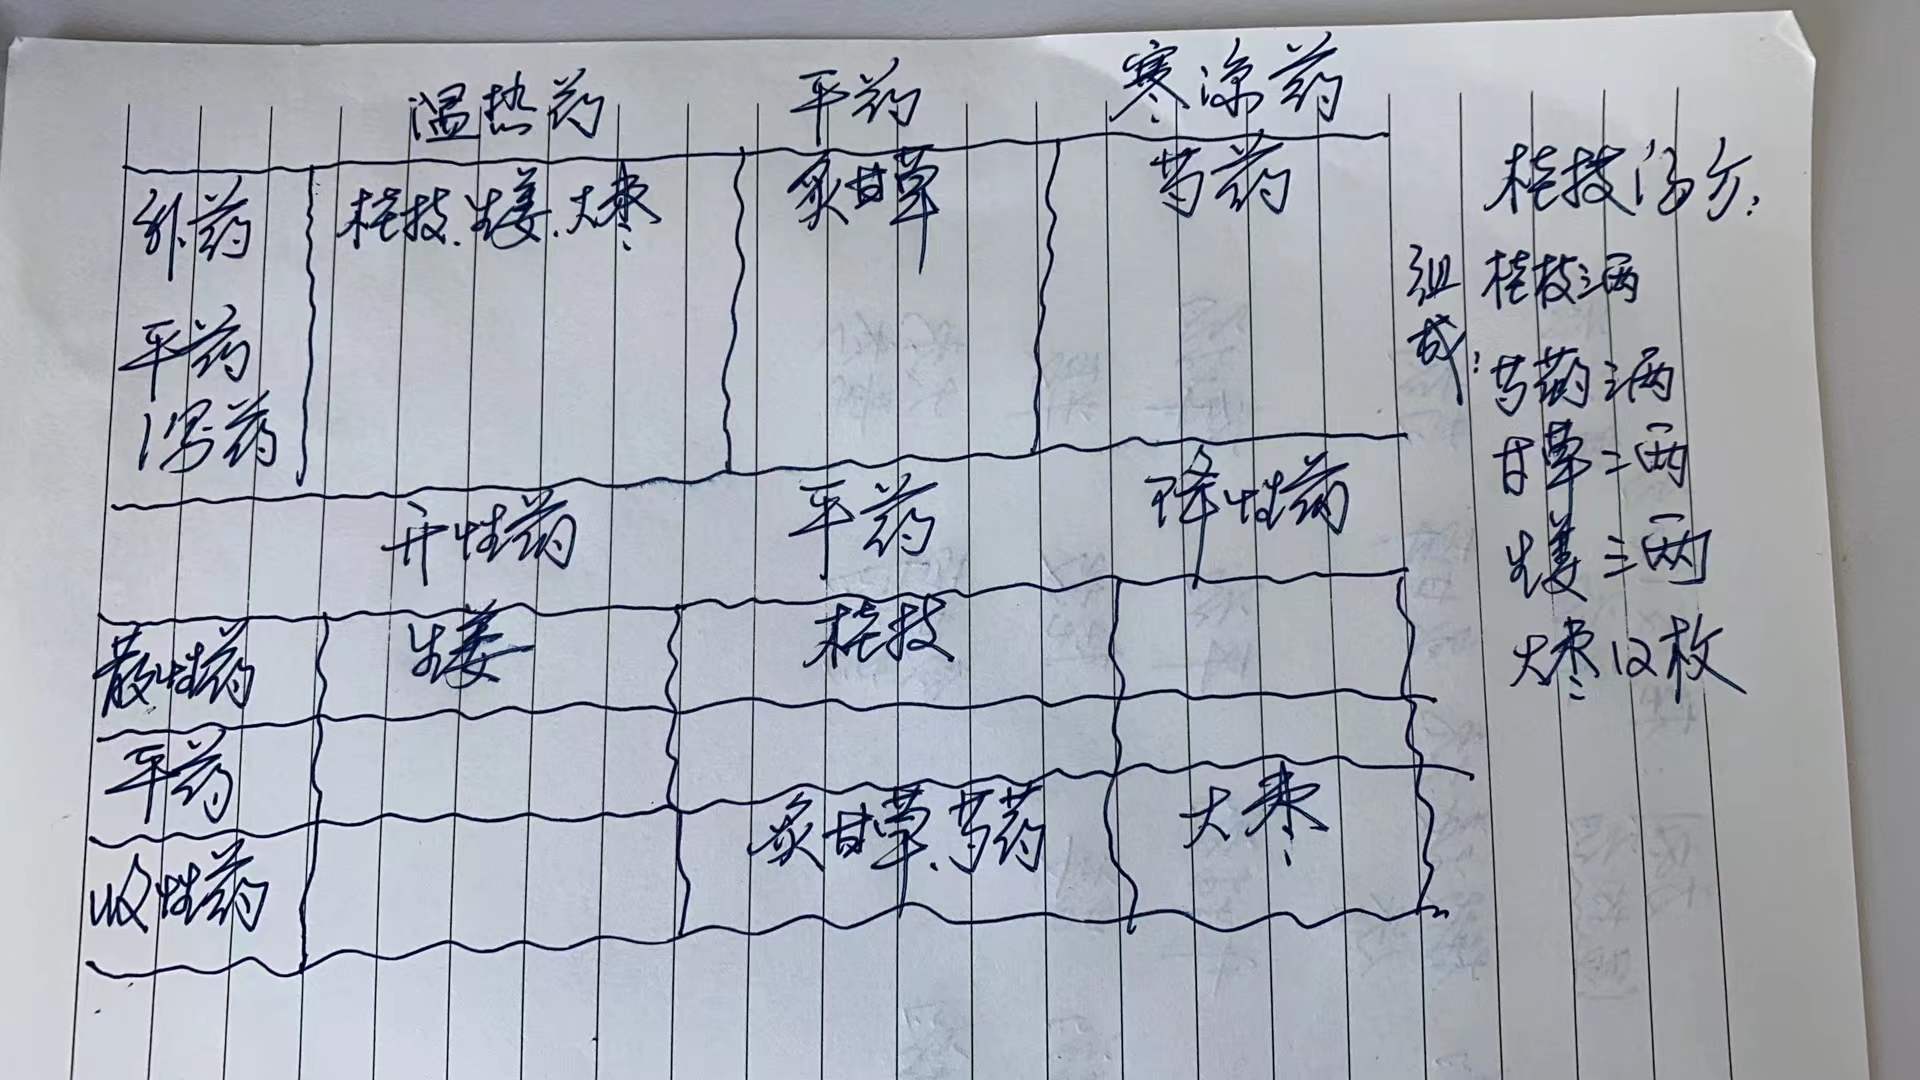 温热药 平药 寒凉药
补药 桂枝、生姜、大枣 炙甘草 芍药
平药
泻药
升性药 平药 降性药
散性药 生姜 桂枝
平药
收性药 炙甘草、芍药 大枣
桂枝汤方:
组成: 桂枝三两
芍药三两
甘草二两
生姜三两
大枣12枚